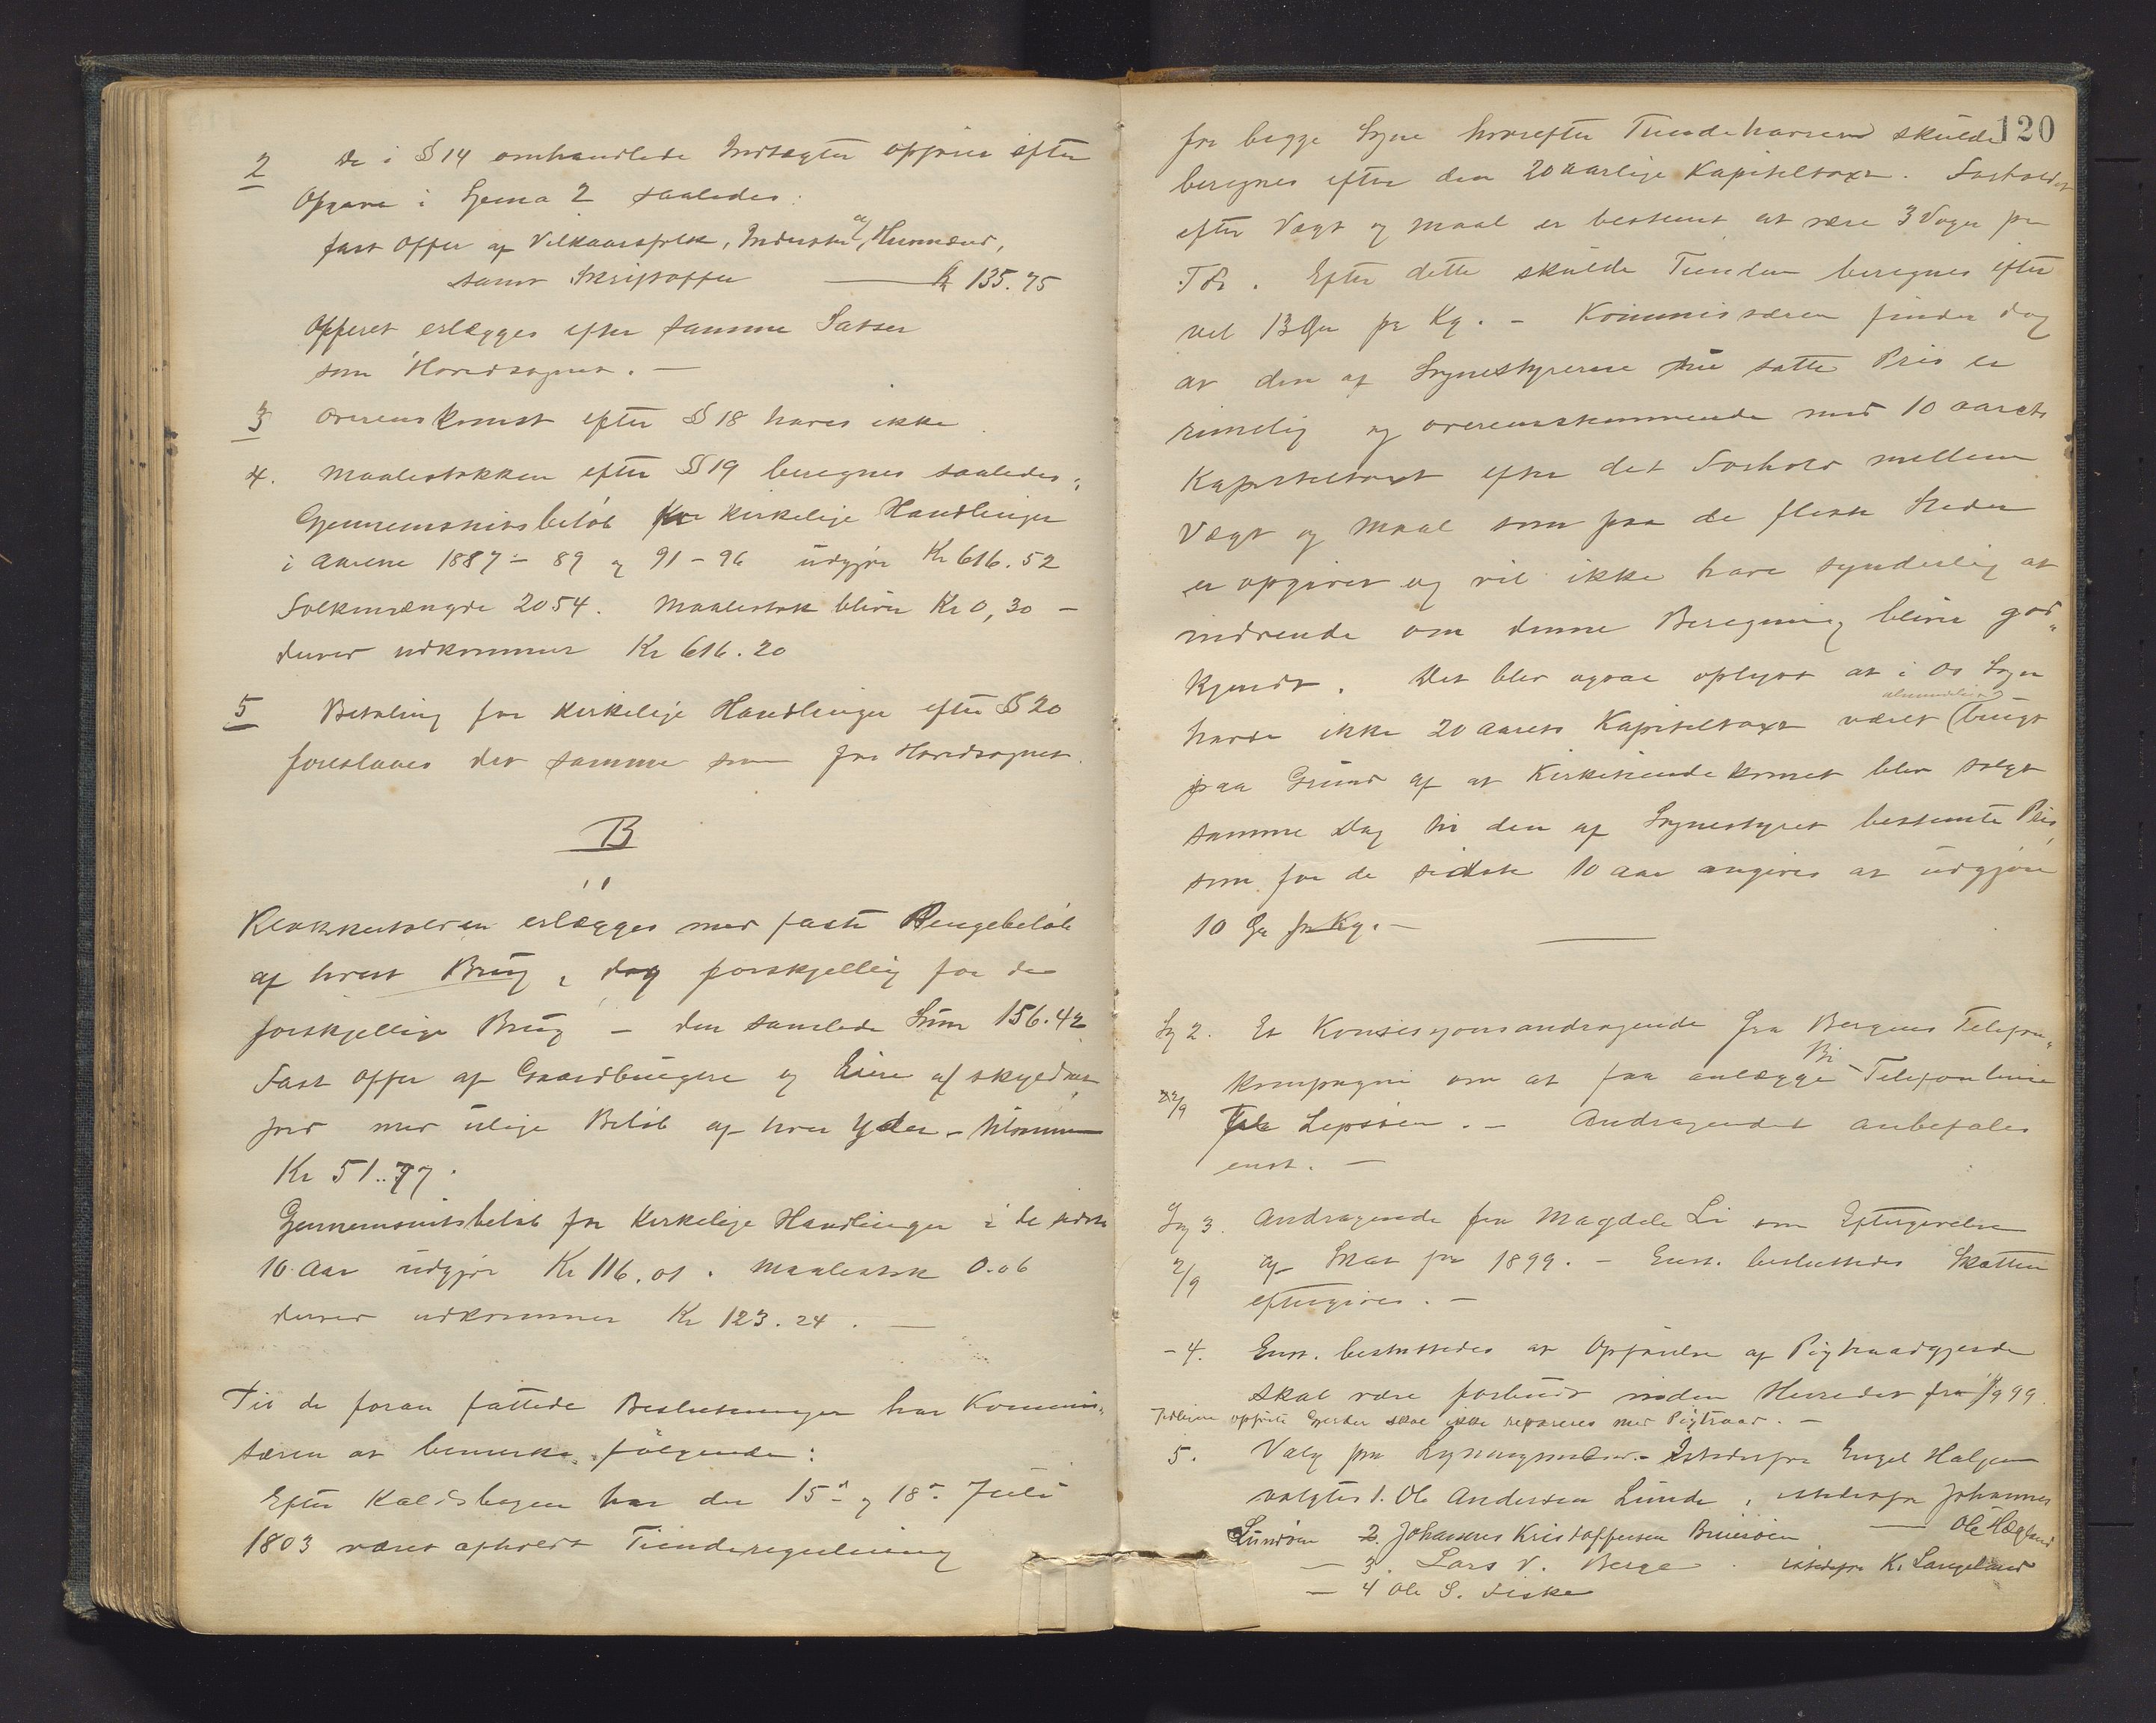 2 De i § 14 omhandlede Indtægter opføres efter
Opgave i Skema 2 saaledes:
fast Offer af Vilkaarsfolk, Inderster og Husmænd,
samt Skriftoffer — Kr 135.75
Offeret erlægges efter samme Satser
som Hovedsognet. —
3 Overenskomst efter § 18 haves ikke.
4. Maalestokken efter § 19 beregnes saaledes:
Gjennemsnitsbeløb for kirkelige Handlinger
i Aarene 1887 – 89 og 91 – 96 udgjør Kr 616.52
Folkemængde 2054. Maalestok bliver Kr 0,30 –
derved udkommer Kr 616.20
5 Betaling for kirkelige Handlinger efter § 20
foreslaaes det samme som for Hovedsognet.
B
Klokkertolden erlægges med faste Pengebeløb
af hvert Brug, dog forskjellig for de
forskjellige Brug – den samlede Sum 156.42
Fast Offer af Gaardbrugere og Eiere af skyldsat
Jord med ulige Beløb af hver Yder – tilsammen
Kr 51..77.
Gjennemsnitsbeløb for Kirkelige Handlinger i de sidste
10 Aar udgjør Kr 116.01. Maalestok 0.06
derved udkommer Kr 123.24. —
Til de foran fattede Beslutninger har Kommis„
særen at bemerke følgende:
Efter Kaldsbogen har der 15de og 18de Juli
1803 været afholdt Tienderegulering
120
for begge Sogne hvorefter Tiendehaveren skulde
beregnes efter den 20 aarlige Kapiteltaxt. Forholdet
efter Vægt og Maal er bestemt at være 3 Voger pr
Tde. Efter dette skulde Tienden beregnes efter
vel 13 Øre pr Kg. – Kommissæren finder dog
at den af Sognestyrerne nu satte Pris er
rimelig og overensstemmende med 10 aarets
Kapiteltaxt efter det Forhold mellem
Vægt og Maal som paa de fleste Steder
er opgivet og vil ikke have synderlig at
indvende om denne Beregning bliver god„
kjendt. Det blev ogsaa oplyst at i Os Sogn
havde ikke 20 aarets Kapiteltaxt været (almindelig) brugt
paa Grund af at Kirketiendekornet blev solgt
samme Dag til den af Sognestyret bestemte Pris,
som for de sidste 10 Aar angives at udgjøre
10 Øre pr Kg. –
Sg 2. Et Konsesjonsandragende fra Bergens Telefon„
22/9 kompagni om at faa anlægge Bi-Telefonlinie
til Lepsøen. – Andragendet anbefales
enst. –
Sg 3. Andragende fra Magdele Li om Eftergivelse
2/9 af Skat for 1899. – Enst. besluttedes Skatten
eftergives. –
– 4. Enst. besluttedes at Opførelse af Pigtraadgjerde
skal være forbudt inden Herredet fra 1/9 99.
Tidligere opførte Gjerder skal ikke repareres med Pigtraad. –
5. Valg paa – Istedetfor Engel Halgen
valgtes 1. Ole Andersen Lunde, istedetfor Johannes
Sundøen 2. Johannes Kristoffersen Bruerøen — Ole Hægland
— 3. Lars V. Berge istedetfor K. Langeland
— 4 Ole S. Tiske